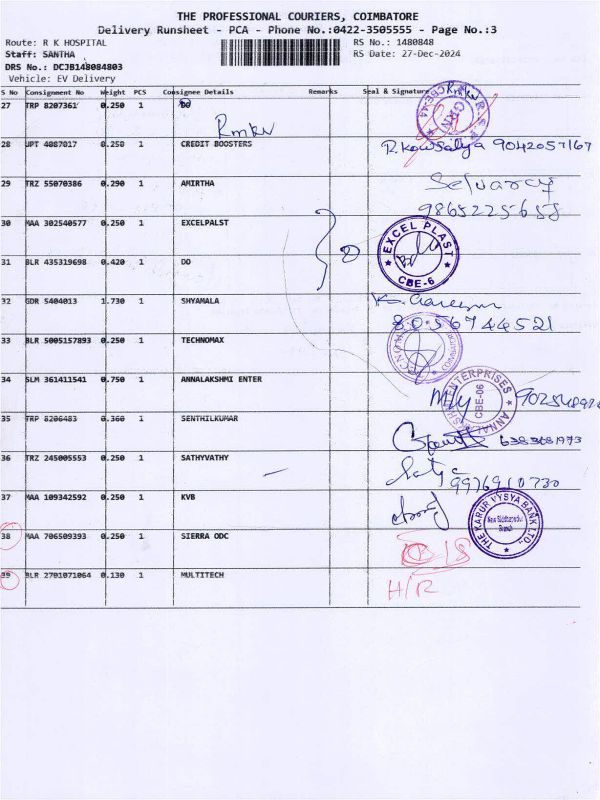 THE PROFESSIONAL COURIERS, COIMBATORE
Delivery Runsheet - PCA - Phone No.:0422-3505555 - Page No.:3
Route: R K HOSPITAL RS No.: 1480848
Staff: SANTHA RS Date: 27-Dec-2024
DRS No.: DCJB148084803
Vehicle: EV Delivery
S No Consignment No Weight PCS Consignee Details Remarks Seal & Signature
27 TRP 8207361 0.250 1 DO
Rmkv
28 UPT 4087017 0.250 1 CREDIT BOOSTERS R. Kowsalya 9042057167
29 TRZ 55070386 0.290 1 AMIRTHA Selvaraj
9865225658
30 MAA 302540577 0.250 1 EXCELPALST
EXCEL PLAST
CBE-6
31 BLR 435319698 0.420 1 DO
32 GDR 5404013 1.730 1 SHYAMALA
8056744521
33 BLR 5005157893 0.250 1 TECHNOMAX
34 SLM 361411541 0.750 1 ANNALAKSHMI ENTER
ENTERPRISES
CBE-06
35 TRP 8206483 0.360 1 SENTHILKUMAR
36 TRZ 245005553 0.250 1 SATHYVATHY Satya
9976910730
37 MAA 109342592 0.250 1 KVB
THE KARUR VYSYA BANK LTD.,
Branch
38 MAA 706509393 0.250 1 SIERRA ODC
39 BLR 2701071064 0.130 1 MULTITECH H/R